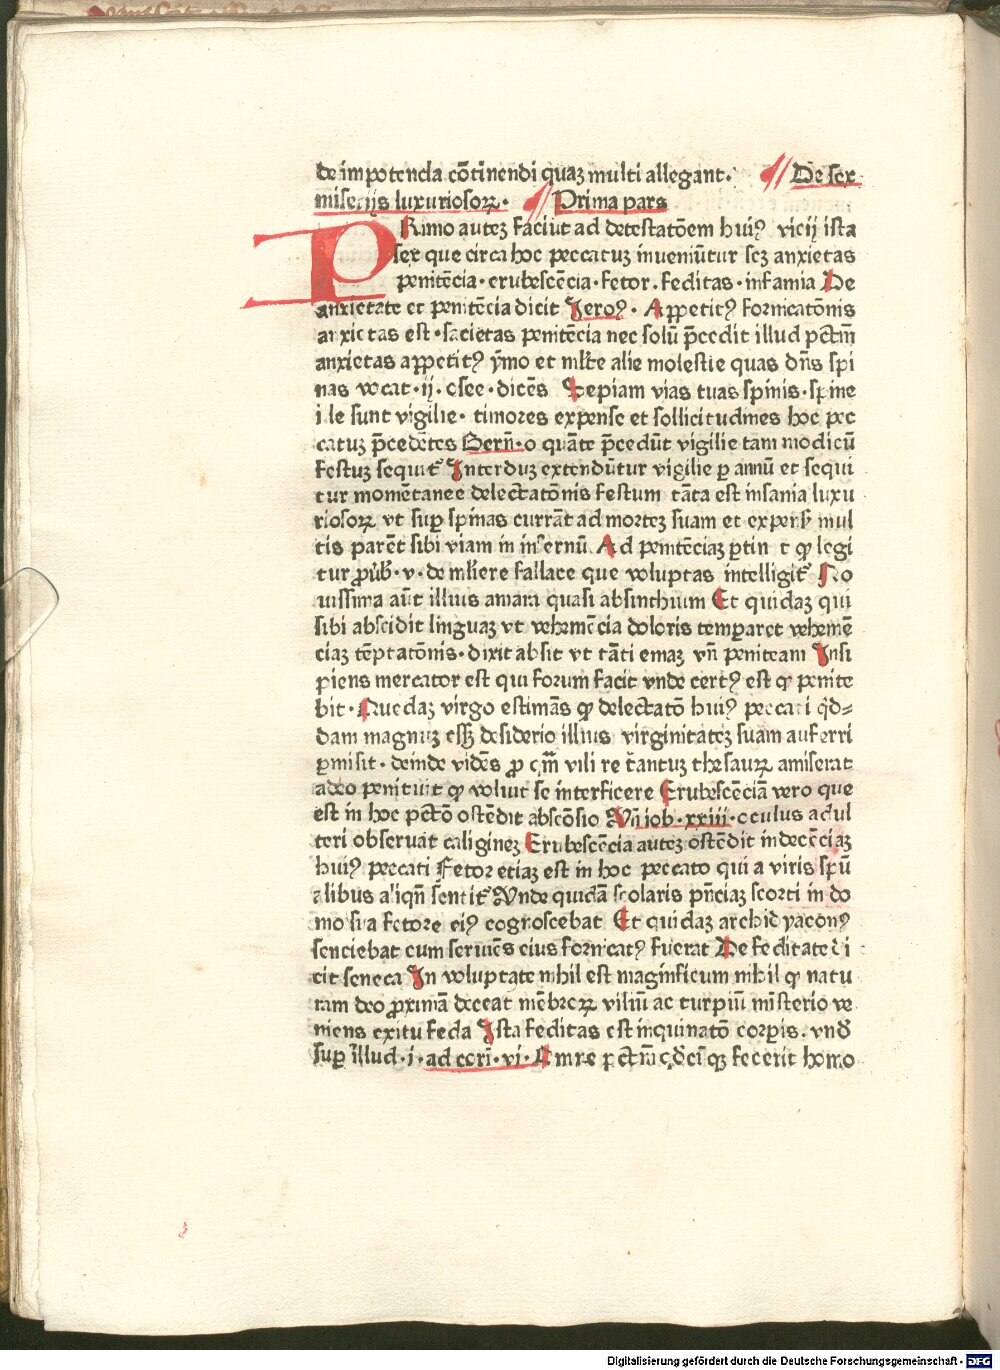 de impotencia cōtinendi quaꝫ multi allegant. De sex
miserijs luxuriosoꝝ. Prima pars
PRimo auteꝫ faciūt ad detestatōem huiꝰ vicij ista
sex que circa hoc peccatuꝫ inueniūtur scꝫ anxietas
penitēcia. erubescēcia. fetor. feditas. infamia De
anxietate et penitēcia dicit Jeroꝰ. Appetitꝰ fornicatōnis
anxietas est. sacietas penitēcia nec solū p̄cedit illud pctm̄
anxietas appetitꝰ ymo et mlte alie molestie quas dn̄s spi
nas vocat. ij. osee. dicēs Sepiam vias tuas spinis. spine
ille sunt vigilie. timores expense et sollicitudines hoc pec
catuꝫ p̄cedētes Bern̄. o quāte p̄cedūt vigilie tam modicū
festuꝫ sequit̄ Interduꝫ extendūtur vigilie ꝑ annū et sequi
tur momētanee delectatōnis festum tāta est insania luxu
riosoꝝ vt suꝑ spinas currāt ad morteꝫ suam et expensꝭ mul
tis parēt sibi viam in infernū. Ad penitēciaꝫ ꝑtinet qꝫ legi
tur ꝓuꝟb. v. de mliere fallace que voluptas intelligit̄ No
uissima aūt illius amara quasi absinthium Et quidaꝫ qui
sibi abscidit linguaꝫ vt vehemēcia doloris temꝑaret vehemē
ciaꝫ tēptatōnis. dixit absit vt tāti emaꝫ vn̄ peniteam Insi
piens mercator est qui forum facit vnde certꝰ est qꝫ penite
bit. Quedaꝫ virgo estimās qꝫ delectatō huiꝰ peccati qd=
dam magnuꝫ esset desiderio illius virginitateꝫ suam auferri
ꝑmisit. deinde vidēs ꝓ qm̄ vili re tantuꝫ thesauꝝ amiserat
adeo penituit qꝫ voluit se interficere Erubescēciā vero que
est in hoc pctō ostēdit abscōsio Vn̄ iob. xxiii. oculus adul
teri obseruat caligineꝫ Erubescēcia auteꝫ ostēdit indecēciaꝫ
huiꝰ peccati Fetor etiaꝫ est in hoc peccato qui a viris spūa
alibus aliqn̄ sentit̄ Vnde quidā scolaris pn̄ciaꝫ scorti in do
mo sua fetore eiꝰ cognoscebat Et quidaꝫ archidyaconꝰ
senciebat cum seruiēs eius fornicatꝰ fuerat De feditate di
cit seneca In voluptate nihil est magnificum nihil qꝫ natu
ram deo ꝓximā deceat mēbroꝝ viliū ac turpiū misterio ve
niens exitu feda Ista feditas est inquinatō corpis. vnd
suꝑ illud. i. ad cori. vi. Omne pctm̄ qdcūqꝫ fecerit homo
Digitalisierung gefördert durch die Deutsche Forschungsgemeinschaft - DFG